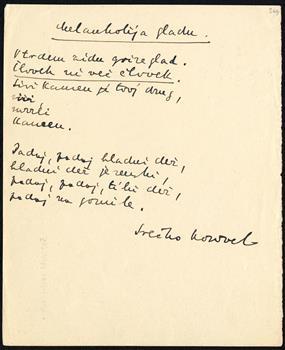 Melanholija gladu.
V trdem zidu grize glad.
Človek ni več človek.
Sivi kamen je tvoj drug,
sivi
mrzli
kamen.
Padaj, padaj hladni dež,
hladni dež jesenski,
padaj, padaj, tihi dež,
padaj na gomile.
Srečko Kosovel